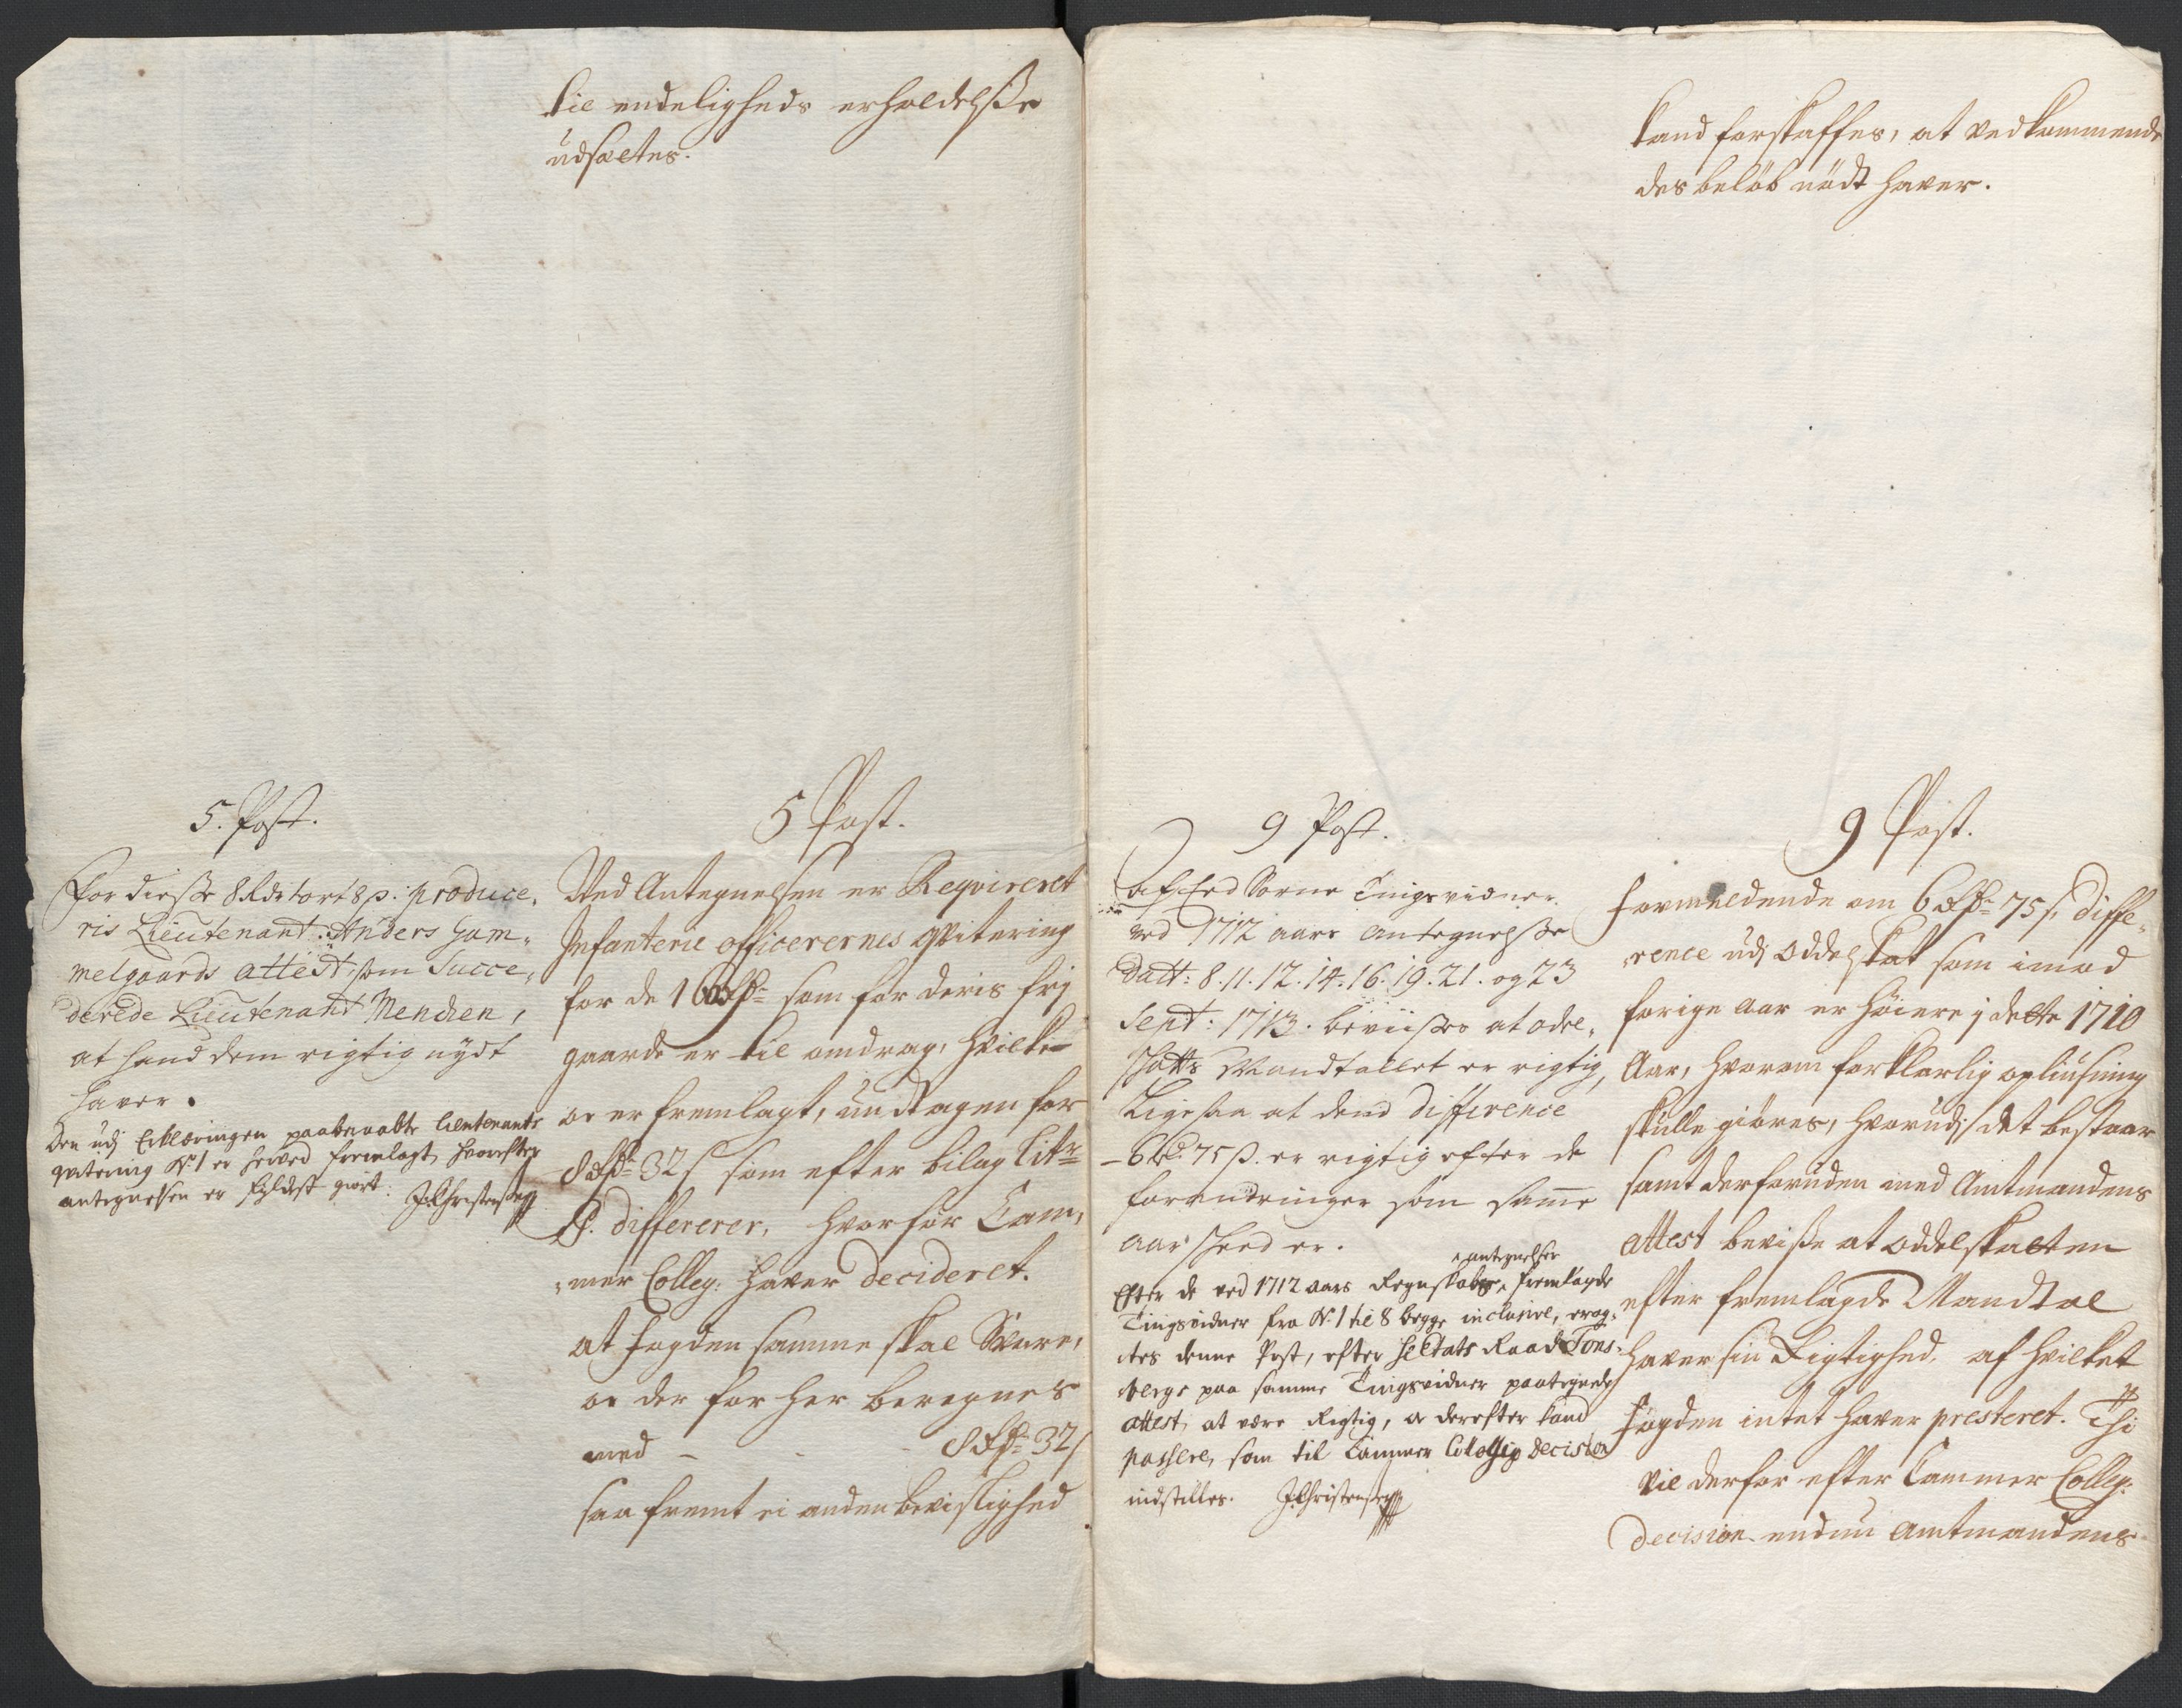 til endeligheds erholdelsse
udsættes.
5. Post.
For disse 8 Rdr 1 ort 8 s: produce,
ris Lieutenant: Anders Gam,
melgaards attest, som Succe,
derede Lieutenant Menchen,
at hand dem rigtig nÿdt
haver.
Den udj Erklæringen paaberaabte lieutenants
qvitering No 1 er herved fremlagt, hvorefter
antegnelsen er fyldest giort.
5 Post.
Ved Antegnelsen er Reqvireret
Infanterie officerernes qvitering
for de som for deris frj
gaarde er til omdrag, hvilke
oc er fremlagt, undtagen for
8 Rdr 32 s som efter bilag Litr
differerer, hvorfor Cam,
mer Colleg: haver decideret.
at fogden samme skal Svare,
oc der for her beregnes
med - - 8 Rdr 32 s
saa fremt ei anden beviislighed
kand forskaffes, at vedkommende
des beløb nødt haver.
9 Post.
Tingsvidner
ved 1712 aars antegnelsse
datt: 8. 11. 12. 14. 16. 19. 21. og 23
Sept: 1713. beviisses at odel,
schatts Mandtallet er rigtig,
Ligesaa at dend difference
- 6 Rd 75 s. er rigtig efter de
forandringer som samme
aar scheed er.
Efter de ved 1712 aars Regnskabs antegnelser fremlagde
Tingsvidner fra No 1 til 8 begge inclusive, erag,
tes denne Post, efter Hr Etats Raad Tons,
bergs paa samme Tingsvidner paategnede
attest, at være Rigtig, oc derefter kand
passere, som til Cammer Collegii Decision
indstilles.
9 Post.
Formeldende om 6 Rdr 75 s. diffe,
rence udj oddelskat som imod
forige aar er høiere j dette 1710
Aar, hvorom forklarlig opliusning
skulle giøres, hvorudj det bestaar
samt derforuden med Amtmandens
attest bevisse at oddelskatten
efter fremlagde Mandtal
haver sin Rigtighed, af hvilket
fogden intet haver presteret. Thi
vil derfor efter Cammer Colleg:
Decision endnu Amtmandens